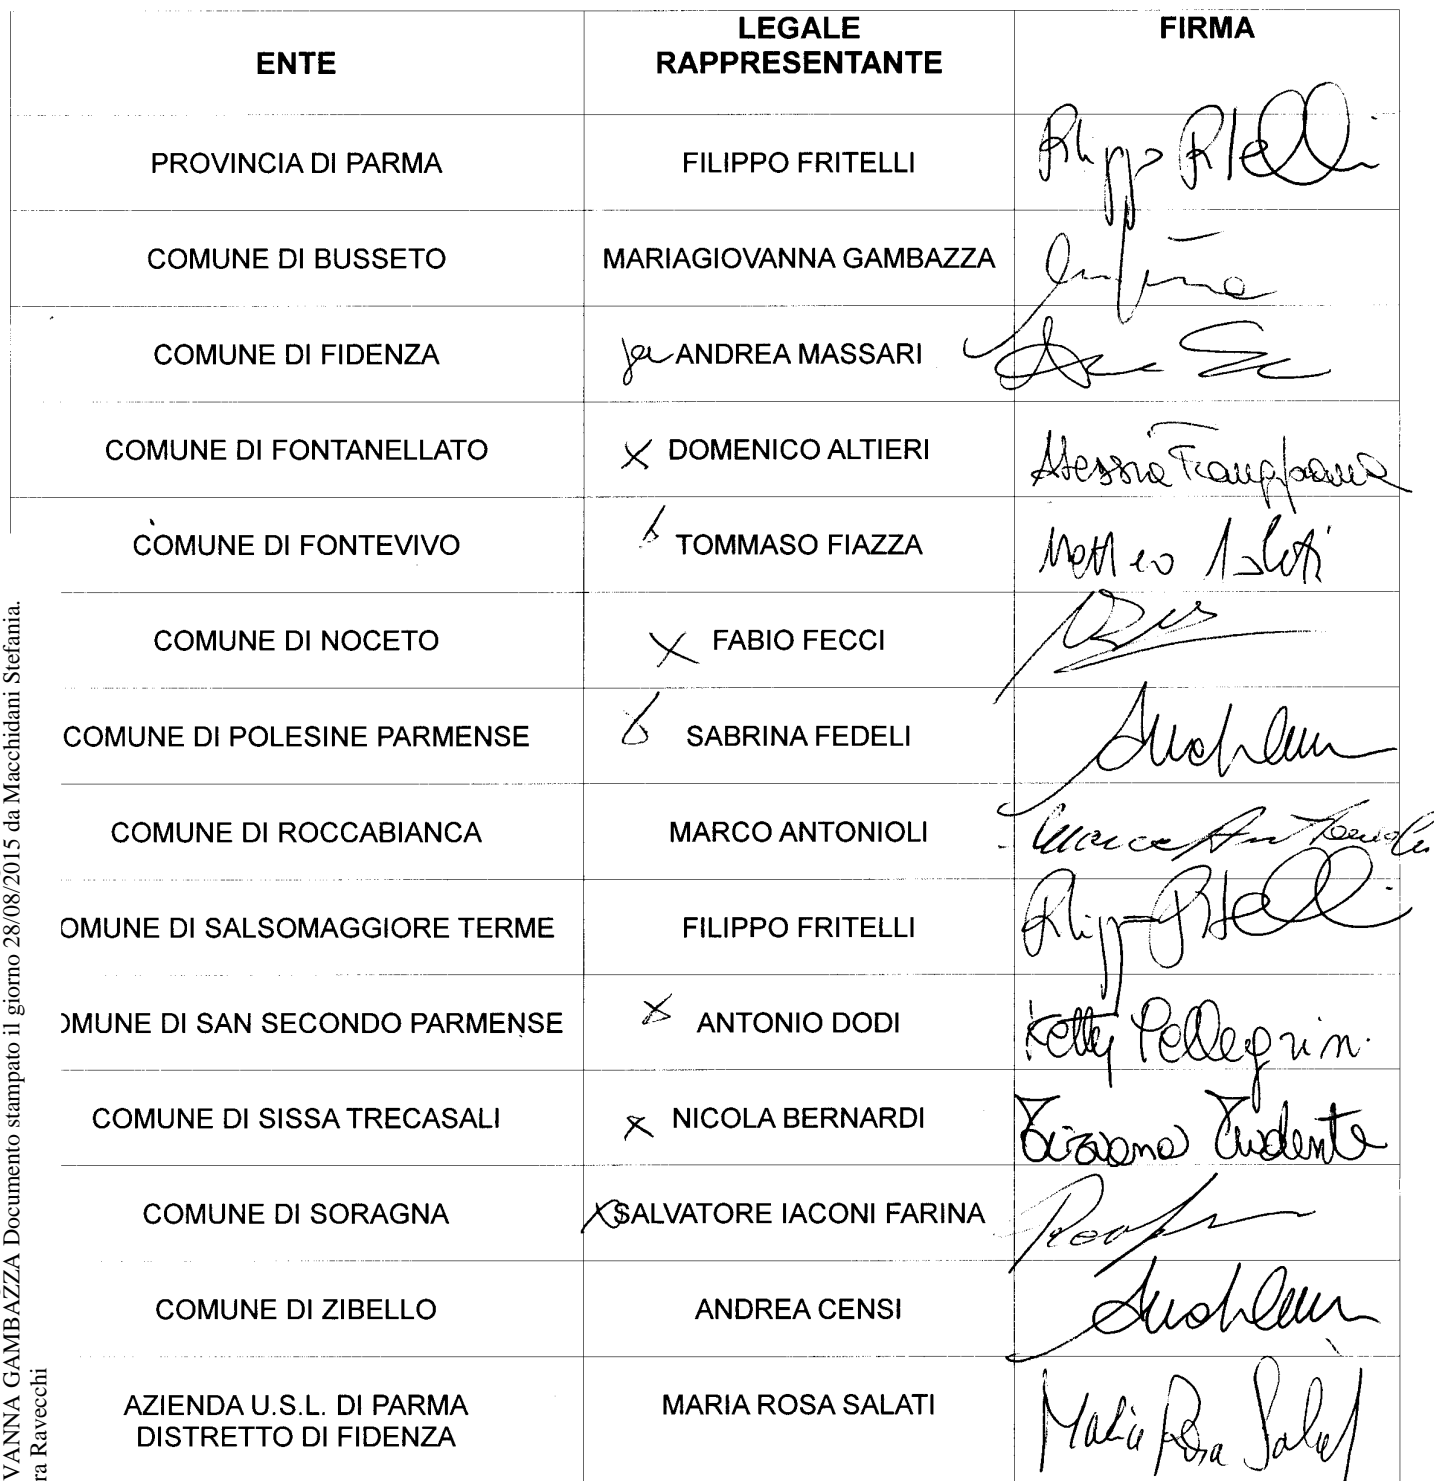 ENTE
LEGALE
RAPPRESENTANTE
FIRMA
PROVINCIA DI PARMA
FILIPPO FRITELLI
Filippo Fritelli
COMUNE DI BUSSETO
MARIAGIOVANNA GAMBAZZA
COMUNE DI FIDENZA
ANDREA MASSARI
COMUNE DI FONTANELLATO
X DOMENICO ALTIERI
Alessia Frangipane
COMUNE DI FONTEVIVO
TOMMASO FIAZZA
Matteo
COMUNE DI NOCETO
X FABIO FECCI
COMUNE DI POLESINE PARMENSE
SABRINA FEDELI
COMUNE DI ROCCABIANCA
MARCO ANTONIOLI
Marco Antonioli
OMUNE DI SALSOMAGGIORE TERME
FILIPPO FRITELLI
Filippo Fritelli
OMUNE DI SAN SECONDO PARMENSE
X ANTONIO DODI
Ketty Pellegrini
COMUNE DI SISSA TRECASALI
X NICOLA BERNARDI
Tiziana Tridente
COMUNE DI SORAGNA
X SALVATORE IACONI FARINA
COMUNE DI ZIBELLO
ANDREA CENSI
AZIENDA U.S.L. DI PARMA
DISTRETTO DI FIDENZA
MARIA ROSA SALATI
Maria Rosa Salati
VANNA GAMBAZZA Documento stampato il giorno 28/08/2015 da Macchidani Stefania.
ra Ravecchi